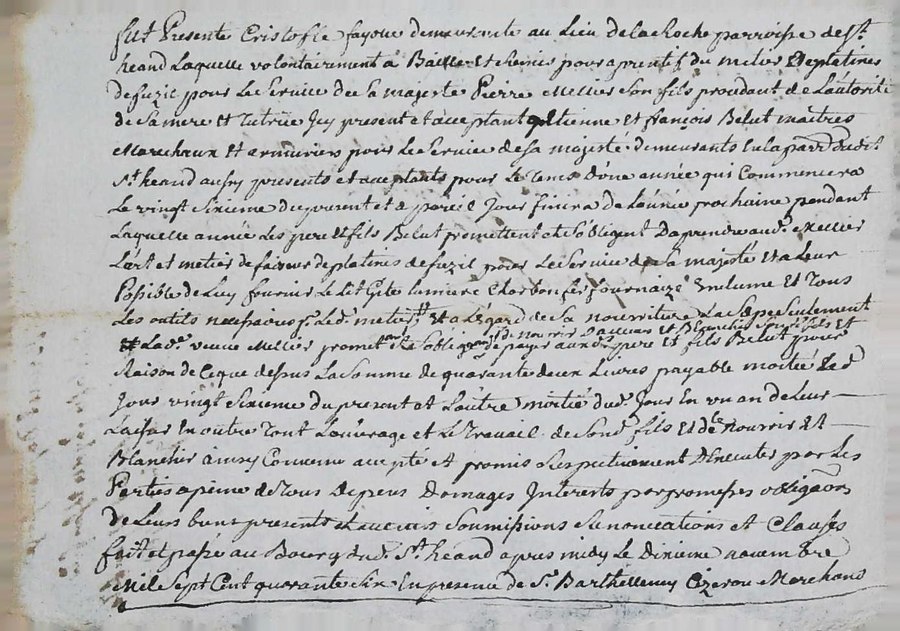 fut Presente Cristofle fayolle demeurante au Lieu de la Roche parroisse de St.
heand Laquelle volontairement à Baillé et remis pour aprentif du metier de platines
de fuzil pour Le Service de Sa majesté Pierre Mellier Son fils procedant de L'autorité
de Sa mere et Tutrice Icy present et acceptant a Etienne et françois Belut maitres
Marechaux et armuriers pour Le Service de sa majesté demeurants En la parr. dudit
St. heand aussy presents et acceptants pour Le Tems d'une année qui Commencera
Le vingt Sixieme du present et a pareil Jour finira de L'année prochaine pendant
Laquelle année Les pere et fils Belut promettent et s'obligent D'aprendre aud. Mellier
L'art et metier de faiseur de platines de fuzil pour Le Service de Sa majesté et a Leur
Possible de Luy fournir Le Lit Gite Lumiere Charbon fer fournaize Enclume et Tous
Les outils necessaires pr. Led. metier et a L'Egard de Sa nourriture La Soupe Seulement
de nourrir D'ailleurs et Blanchir Sond. fils et
et Lad. veuve Mellier promet et s'oblige de payer auxd. pere et fils Belut pour
Raison de Ce que dessus La Somme de quarante deux Livres payable moitié Led.
Jour vingt Sixieme du present et L'autre moitié dud. Jour En un an de Leur
Laisser En outre Tout L'ouvrage et Le Travail de Sond. fils et de Le nourrir Et
Blanchir ainsy Convenu accepté et promis Respectivement D'Executer par Les
Parties a peine de Tous Depens Domages Interests par promesses obligaons
de Leurs biens presents et advenirs Soumissions Renonciations et Clauses
fait et passé au Bourg dud. St. heand apres midy Le Dixieme novembre
Mil Sept Cent quarante Six En presence de Sr. Barthellemy Marchand